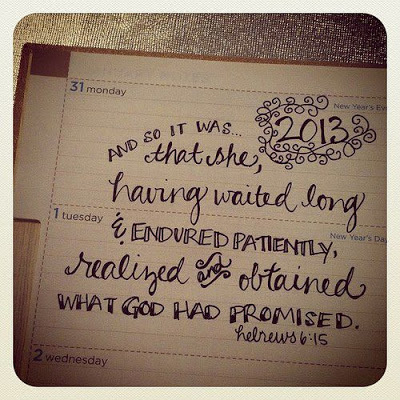 31 monday
New Year's Ev
2013
AND SO IT WAS...
that she,
having waited long
1 tuesday
New Year's Da
& ENDURED PATIENTLY,
realized and obtained
WHAT GOD HAD PROMISED.
hebrews 6:15
2 wednesday